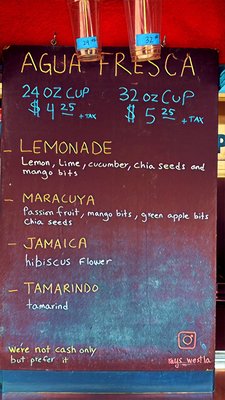 24 32
AGUA FRESCA
24 OZ CUP 32 OZ CUP
$ 4 25 + TAX $ 5 25 + TAX
– LEMONADE
Lemon, Lime, cucumber, chia seeds and
mango bits
– MARACUYA
Passion fruit, mango bits, green apple bits
Chia seeds
– JAMAICA
hibiscus flower
– TAMARINDO
tamarind
We're not cash only
but prefer it
mys_westla